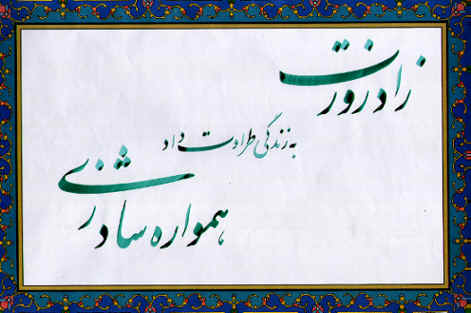 زادروزت
به زندگی طراوت داد
همواره شاد زی